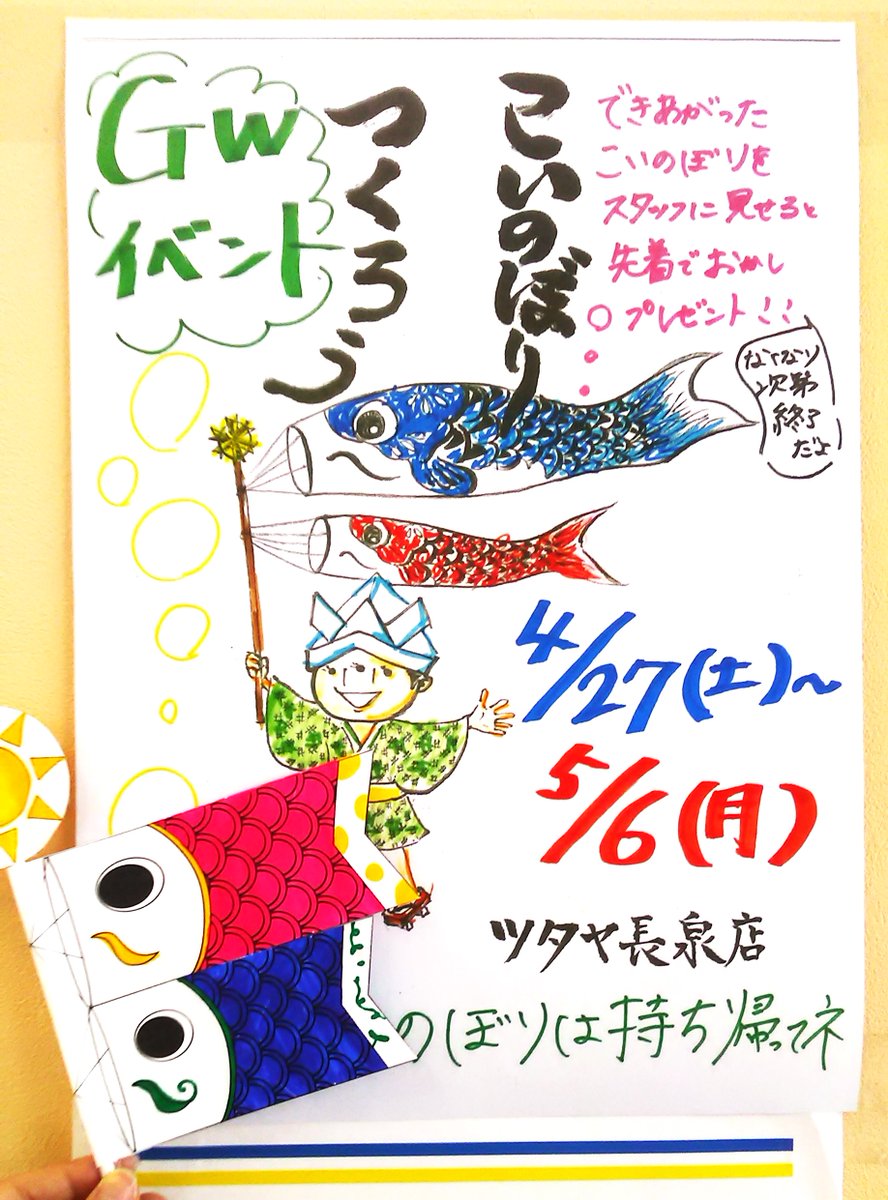 GW
イベント
こいのぼり
つくろう
できあがった
こいのぼりを
スタッフに見せると
先着でおかし
プレゼント!!
なくなり
次第
終了
だよ
4/27(土)~
5/6(月)
ツタヤ長泉店
のぼりは持ち帰ってネ